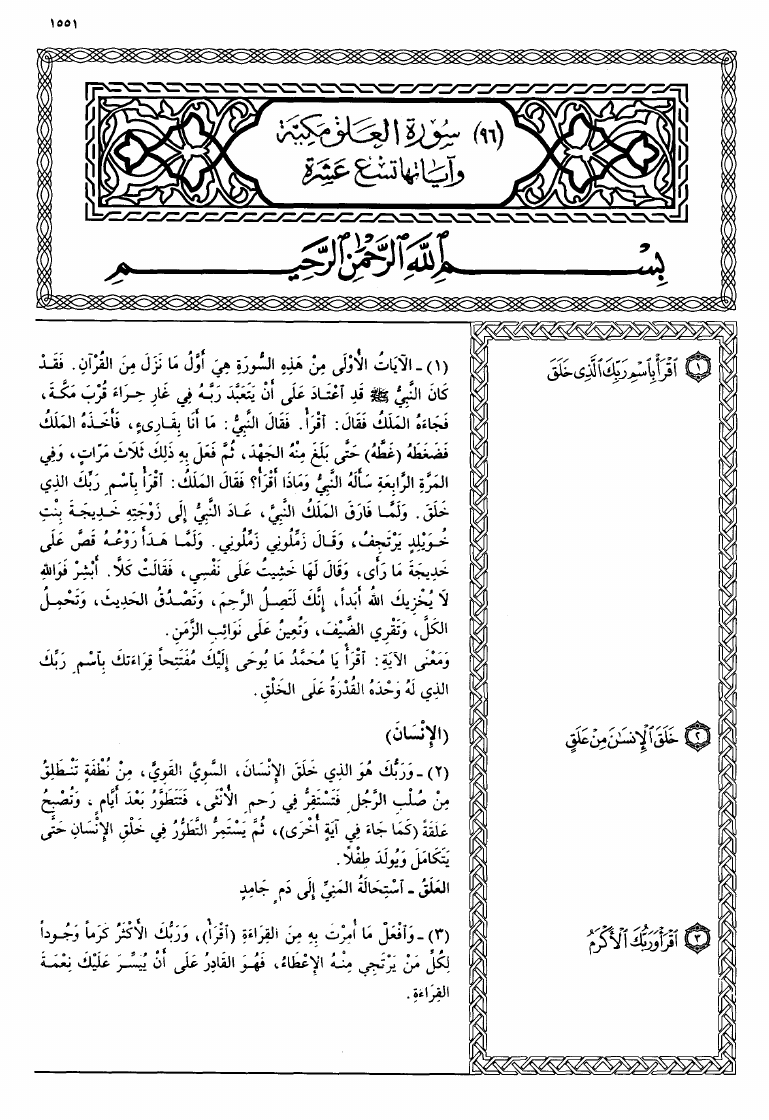 ١٥٥١
(٩٦) سُورَة العَلق مَكيّة
وَآيَاتها تسْع عَشرَة
بِسْمِ ٱللَّهِ ٱلرَّحْمَٰنِ ٱلرَّحِيمِ
١ ٱقْرَأْ بِٱسْمِ رَبِّكَ ٱلَّذِى خَلَقَ
(١) - الآيَاتُ الأُوْلَى مِنْ هَذِهِ السُّورَةِ هِيَ أَوَّلُ مَا نَزَلَ مِنَ القُرْآنِ. فَقَدْ
كَانَ النَّبِيُّ ﷺ قَدِ ٱعْتَادَ عَلَى أَنْ يَتَعَبَّدَ رَبَّهُ فِي غَارِ حِرَاءَ قُرْبَ مَكَّةَ،
فَجَاءَهُ المَلَكُ فَقَالَ: ٱقْرَأْ. فَقَالَ النَّبِيُّ: مَا أَنَا بِقَارِىءٍ، فَأَخَذَهُ المَلَكُ
فَضَغَطَهُ (غَطَّهُ) حَتَّى بَلَغَ مِنْهُ الجَهْدَ، ثُمَّ فَعَلَ بِهِ ذَلِكَ ثَلَاثَ مَرَّاتٍ، وَفِي
المَرَّةِ الرَّابِعَةِ سَأَلَهُ النَّبِيُّ وَمَاذَا أَقْرَأُ؟ فَقَالَ المَلَكُ: ٱقْرَأْ بِٱسْمِ رَبِّكَ الذِي
خَلَقَ. وَلَمَّا فَارَقَ المَلَكُ النَّبِيَّ، عَادَ النَّبِيُّ إِلَى زَوْجَتِهِ خَدِيجَةَ بِنْتِ
خُوَيْلِدٍ يَرْتَجِفُ، وَقَالَ زَمِّلُونِي زَمِّلُونِي. وَلَمَّا هَدَأَ رَوْعُهُ قَصَّ عَلَى
خَدِيجَةَ مَا رَأَى، وَقَالَ لَهَا خَشِيتُ عَلَى نَفْسِي، فَقَالَتْ كَلَّا. أَبْشِرْ فَوَاللهِ
لَا يُخْزِيكَ اللهُ أَبَداً، إِنَّكَ لَتَصِلُ الرَّحِمَ، وَتَصْدُقُ الحَدِيثَ، وَتَحْمِلُ
الكَلَّ، وَتَقْرِي الضَّيْفَ، وَتُعِينُ عَلَى نَوَائِبِ الزَّمَنِ.
وَمَعْنَى الآيَةِ: ٱقْرَأْ يَا مُحَمَّدُ مَا يُوحَى إِلَيْكَ مُفْتَتِحاً قِرَاءَتَكَ بِٱسْمِ رَبِّكَ
الذِي لَهُ وَحْدَهُ القُدْرَةُ عَلَى الخَلْقِ.
٢ خَلَقَ ٱلْإِنسَٰنَ مِنْ عَلَقٍ
(الإِنْسَانَ)
(٢) - وَرَبُّكَ هُوَ الذِي خَلَقَ الإِنْسَانَ، السَّوِيَّ القَوِيَّ، مِنْ نُطْفَةٍ تَنْطَلِقُ
مِنْ صُلْبِ الرَّجُلِ فَتَسْتَقِرُّ فِي رَحِمِ الأُنْثَى، فَتَتَطَوَّرُ بَعْدَ أَيَّامٍ، وَتُصْبِحُ
عَلَقَةً (كَمَا جَاءَ فِي آيَةٍ أُخْرَى)، ثُمَّ يَسْتَمِرُّ التَّطَوُّرُ فِي خَلْقِ الإِنْسَانِ حَتَّى
يَتَكَامَلَ وَيُولَدَ طِفْلًا.
العَلَقُ - ٱسْتِحَالَةُ المَنِيِّ إِلَى دَمٍ جَامِدٍ
٣ ٱقْرَأْ وَرَبُّكَ ٱلْأَكْرَمُ
(٣) - وَٱفْعَلْ مَا أُمِرْتَ بِهِ مِنَ القِرَاءَةِ (ٱقْرَأْ)، وَرَبُّكَ الأَكْثَرُ كَرَماً وَجُوداً
لِكُلِّ مَنْ يَرْتَجِي مِنْهُ الإِعْطَاءَ، فَهُوَ القَادِرُ عَلَى أَنْ يُيَسِّرَ عَلَيْكَ نِعْمَةَ
القِرَاءَةِ.